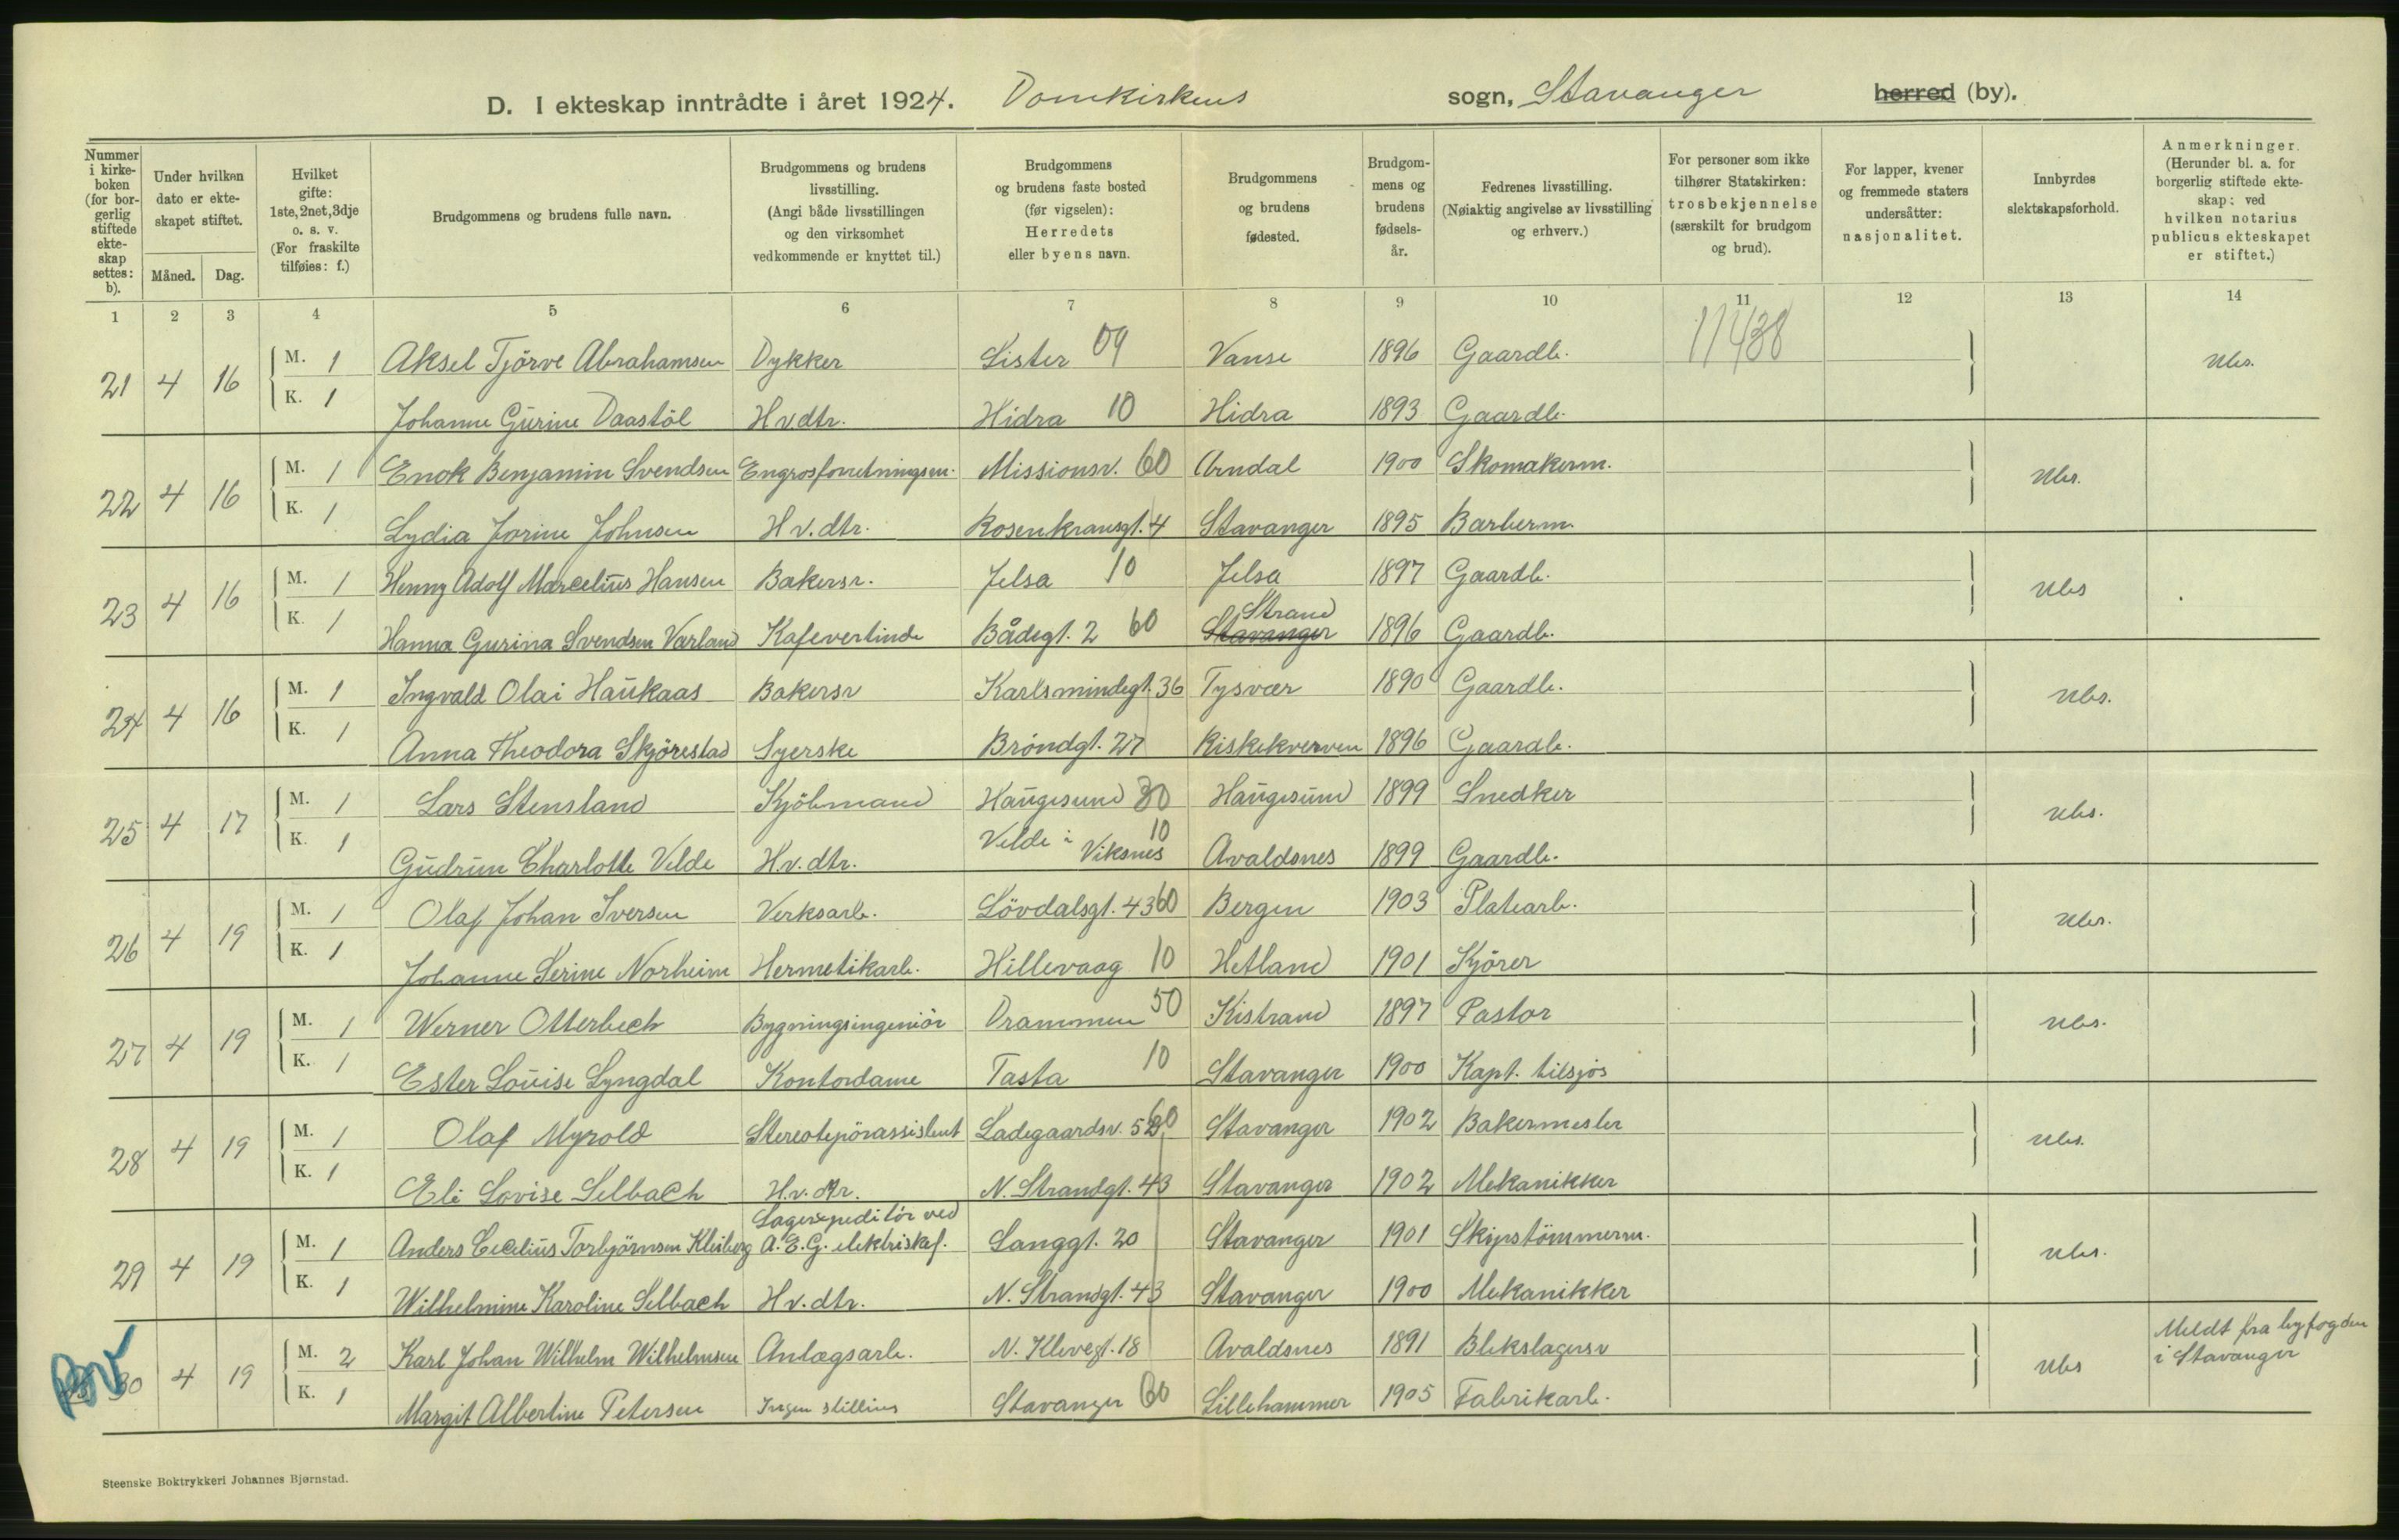 D. I ekteskap inntrådte i året 1924. Domkirkens sogn, Stavanger herred (by).
Nummer i kirke-boken (for bor-gerlig stiftede ekte-skap settes: b).
Under hvilken dato er ekte-skapet stiftet.
Måned. Dag.
Hvilket gifte: 1ste, 2net, 3dje o. s. v. (For fraskilte tilføies: f.)
Brudgommens og brudens fulle navn.
Brudgommens og brudens livsstilling. (Angi både livsstillingen og den virksomhet vedkommende er knyttet til.)
Brudgommens og brudens faste bosted (før vigselen): Herredets eller byens navn.
Brudgommens og brudens fødested.
Brudgom-mens og brudens fødsels-år.
Fedrenes livsstilling. (Nøiaktig angivelse av livsstilling og erhverv.)
For personer som ikke tilhører Statskirken: trosbekjennelse (særskilt for brudgom og brud).
For lapper, kvener og fremmede staters undersåtter: nasjonalitet.
Innbyrdes slektskapsforhold.
Anmerkninger. (Herunder bl. a. for borgerlig stiftede ekte-skap: ved hvilken notarius publicus ekteskapet er stiftet.)
1 2 3 4 5 6 7 8 9 10 11 12 13 14
21 4 16 M. 1 Aksel Tjörve Abrahamsen Dykker Lister 09 Vanse 1896 Gaardb. 11438 Ubs.
K. 1 Johanne Gurine Daastöl H v dtr. Hidra 10 Hidra 1893 Gaardb.
22 4 16 M. 1 Enok Benjamin Svendsen Engrosforretningsm. Missionsv. 60 Arndal 1900 Skomakerm. Ubs.
K. 1 Lydia Jorine Johnsen H v. dtr. Rosenkransgt. 4 Stavanger 1895 Barberm.
23 4 16 M. 1 Henny Adolf Marcelius Hansen Bakersv. Jelsa 10 Jelsa 1897 Gaardb. Ubs
K. 1 Hanna Gurina Svendsen Varland Kafevertinde Bådegt. 2 60 Stavanger Strand 1896 Gaardb.
24 4 16 M. 1 Ingvald Olai Haukaas Bakersv Karlsmindegt. 36 Tysvær 1890 Gaardb. Ubs.
K. 1 Anna Theodora Skjörestad Syerske Bröndgt. 27 Riskekverven 1896 Gaardb.
25 4 17 M. 1 Lars Stensland Kjöbmand Haugesund 30 Haugesund 1899 Snedker Ubs.
K. 1 Gudrun Charlotte Velde H.v. dtr. Velde i Viksnes 10 Avaldsnes 1899 Gaardb.
26 4 19 M. 1 Olaf Johan Iversen Verksarb. Lövdalsgt. 43 60 Bergen 1903 Platearb. Ubs.
K. 1 Johanne Serine Norheim Hermetikarb. Hillevaag 10 Hetland 1901 Kjörer
27 4 19 M. 1 Werner Otterbech Bygningsingeniör Drammen 50 Kistrand 1897 Pastor Ubs.
K. 1 Ester Louise Lyngdal Kontordame Tasta 10 Stavanger 1900 Kapt. tilsjös
28 4 19 M. 1 Olaf Myrold Stereotypörassistent Ladegaardsv. 60 Stavanger 1902 Bakermester Ubs.
K. 1 Eli Lovise Selbach H.v. dtr. N. Strandgt. 43 Stavanger 1902 Mekanikker
29 4 19 M. 1 Anders Cecelius Torbjörnsen Kleiberg Lagerexpeditör ved A. E. G. elektriskaf. Langgt. 20 Stavanger 1901 Skipstömmerm. Ubs.
K. 1 Wilhelmine Karoline Selbach H v. dtr. N. Strandgt. 43 Stavanger 1900 Mekanikker
30 4 19 M. 2 Karl Johan Wilhelm Wilhelmsen Anlægsarb. N. Klevegt. 18 Avaldsnes 1891 Blekslagersv Ubs Meldt fra byfogden i Stavanger
K. 1 Margit Albertine Petersen Ingen stilling Stavanger 60 Lillehammer 1905 Fabrikarb.
Steenske Boktrykkeri Johannes Bjørnstad.